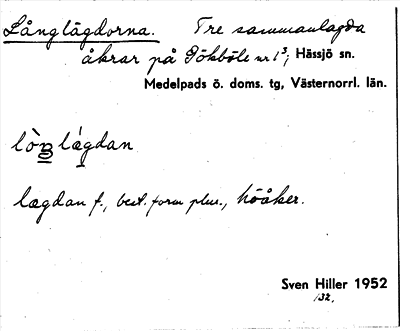 Långlägdorna. Tre sammanlagda
åkrar på Gökböle nr 1³; Hässjö sn.
Medelpads ö. doms. tg, Västernorrl. län.
lòŋlǽgdan
lægdan f., best. form plur., höåker.
Sven Hiller 1952
132,